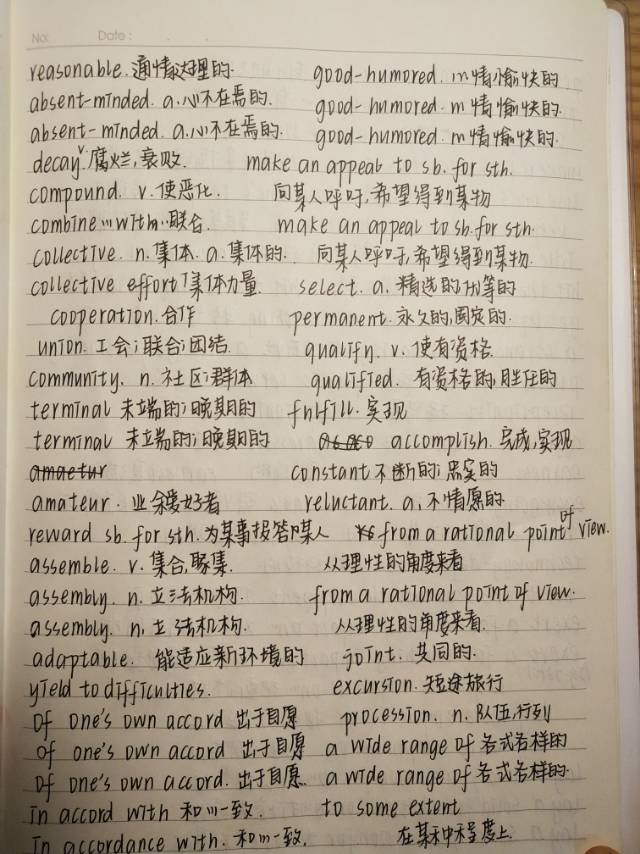 No: Date:
reasonable. 通情达理的. good-humored. m情愉快的.
absent-minded. a. 心不在焉的. good-humored. m情愉快的.
absent-minded. a. 心不在焉的. good-humored. m情愉快的.
decay v. 腐烂, 衰败. make an appeal to sb. for sth.
compound. v. 使恶化. 向某人呼吁, 希望得到某物
combine…with… 联合. make an appeal to sb. for sth.
collective. n. 集体. a. 集体的. 向某人呼吁, 希望得到某物.
collective effort 集体力量. select. a. 精选的, 优等的
cooperation. 合作 permanent. 永久的, 固定的.
union. 工会; 联合; 团结. qualify. v. 使有资格.
community. n. 社区; 群体 qualified. 有资格的, 胜任的
terminal 末端的; 晚期的 fulfill. 实现
terminal 末端的; 晚期的 accomplish. 完成, 实现
amaetur constant 不断的; 忠实的
amateur. 业余爱好者 reluctant. a. 不情愿的.
reward sb. for sth. 为某事报答某人 from a rational point of view.
assemble. v. 集合, 聚集. 从理性的角度来看
assembly. n. 立法机构. from a rational point of view.
assembly. n. 立法机构. 从理性的角度来看.
adaptable. 能适应新环境的 joint. 共同的.
yield to difficulties. excursion. 短途旅行
of one's own accord 出于自愿 procession. n. 队伍, 行列
of one's own accord 出于自愿 a wide range of 各式各样的
of one's own accord. 出于自愿. a wide range of 各式各样的.
in accord with 和…一致. to some extent
In accordance with. 和…一致. 在某种程度上.